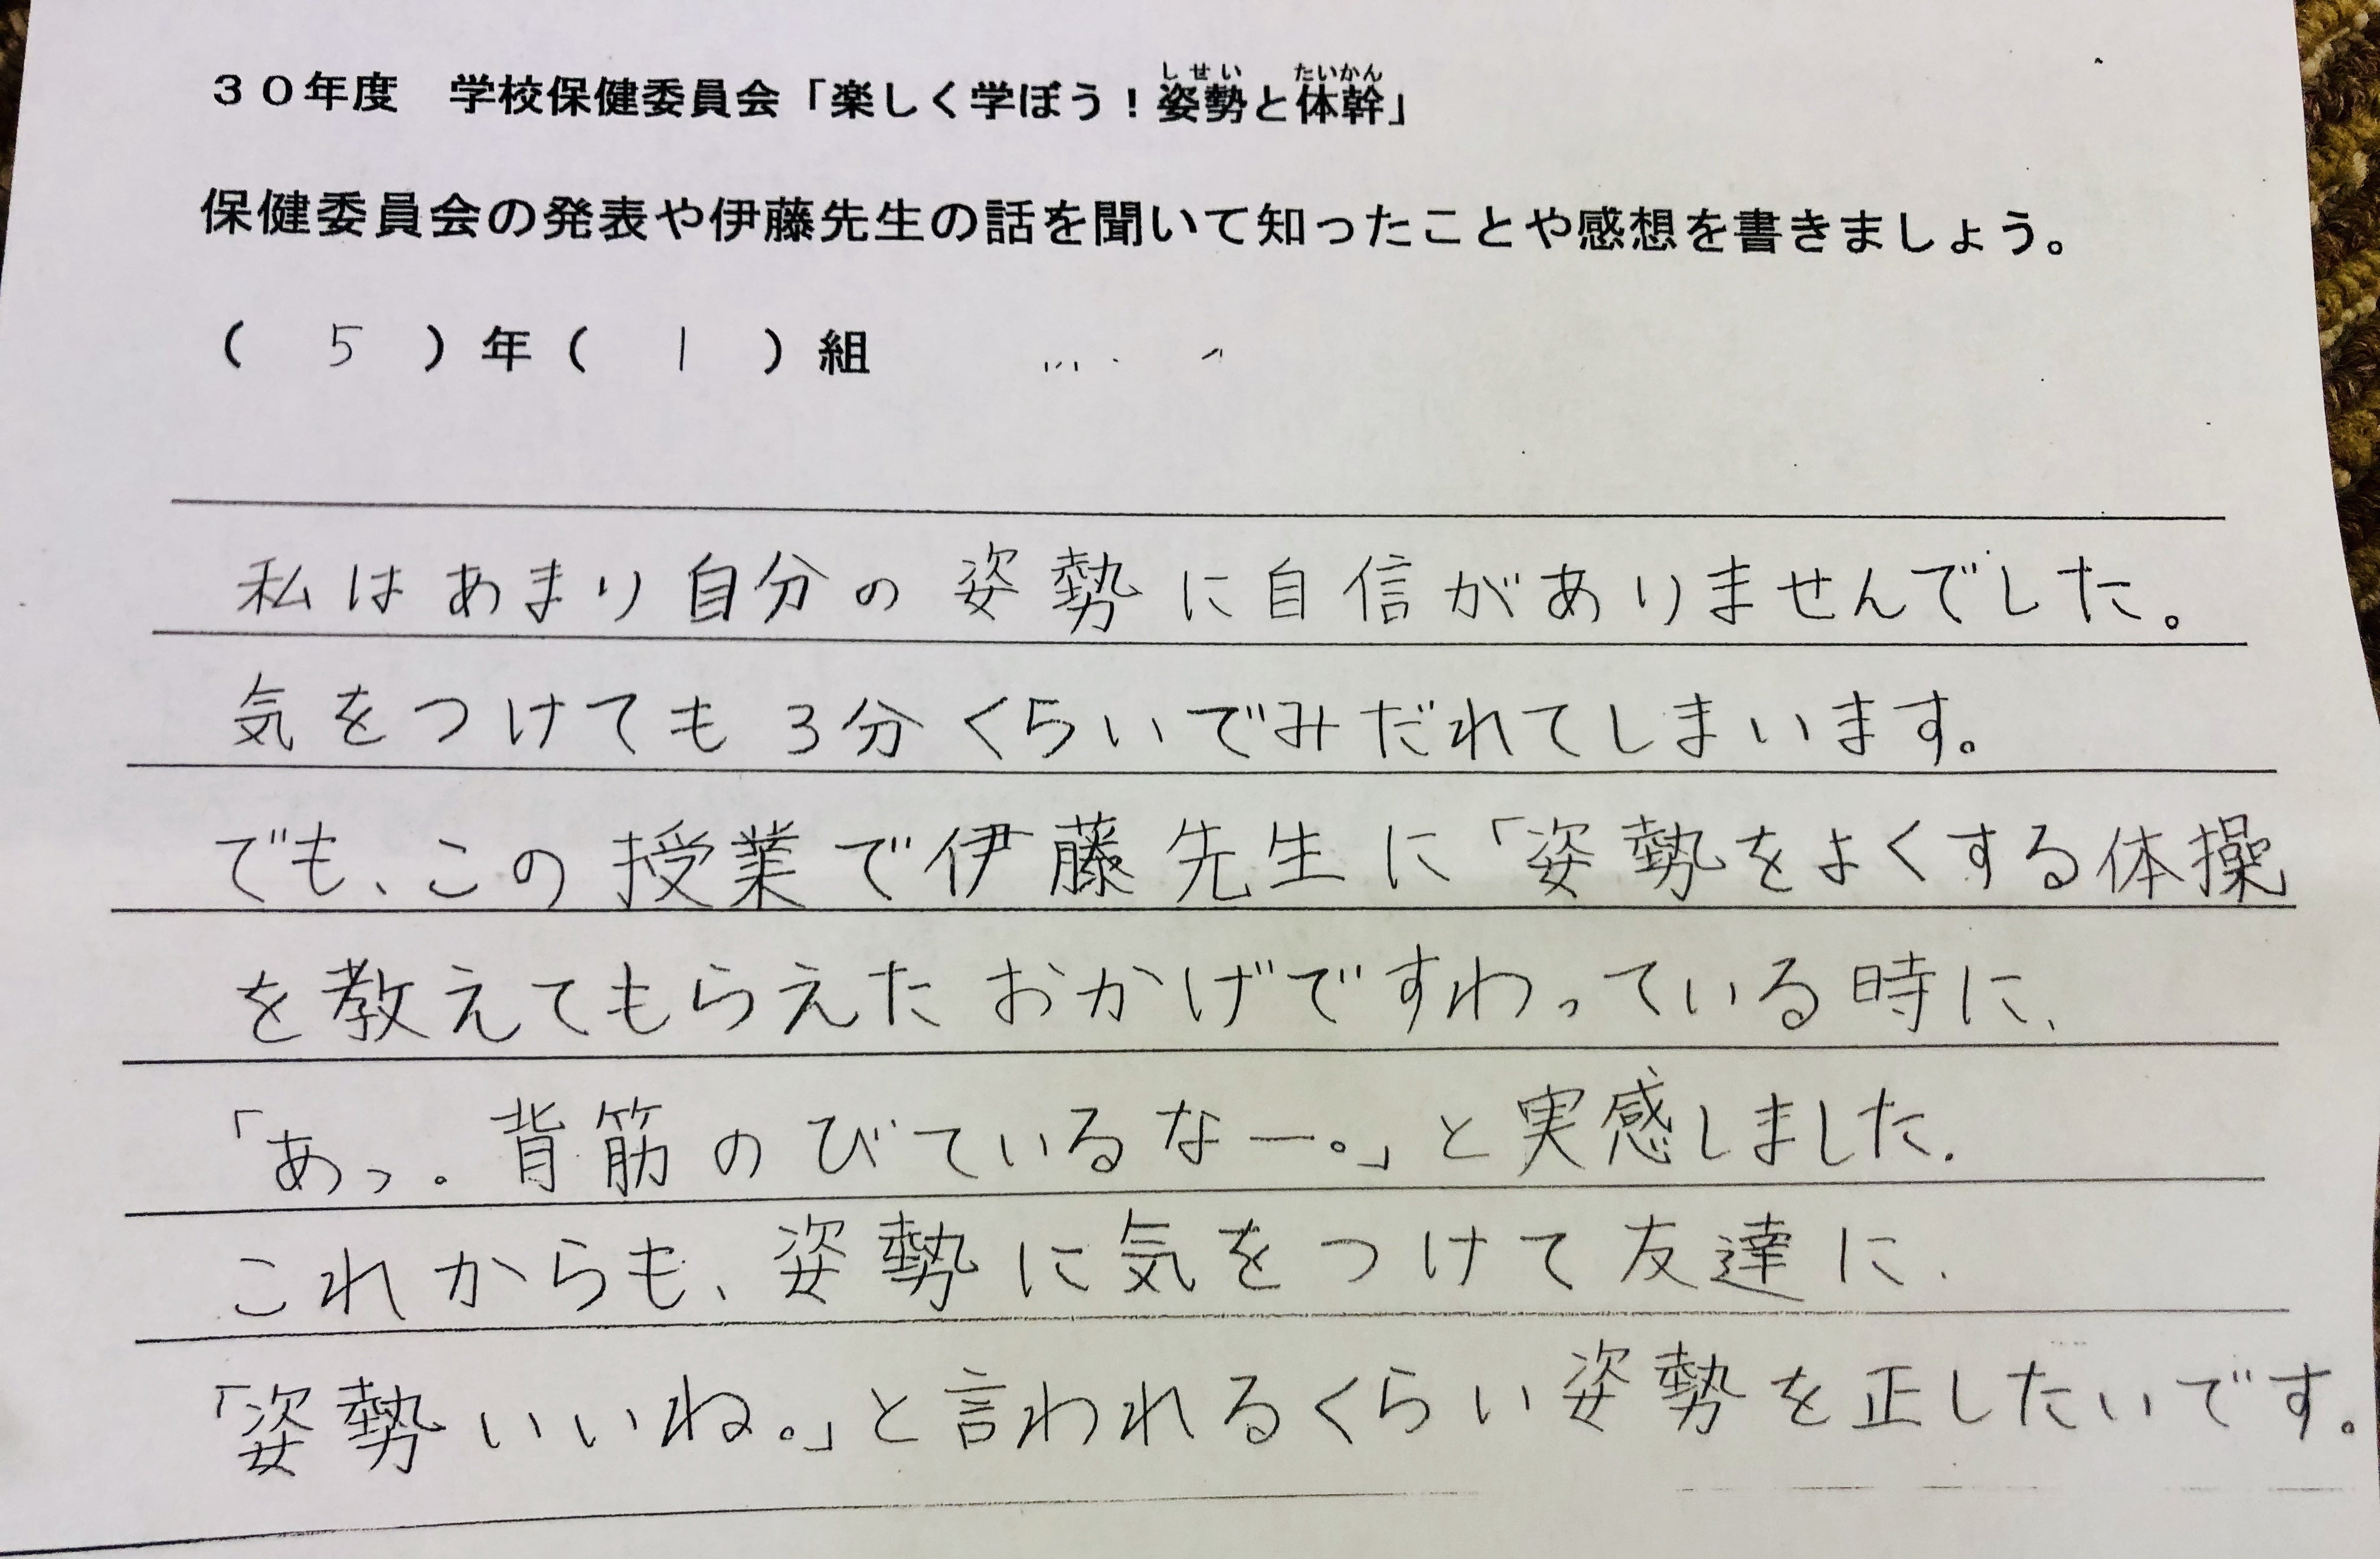 30年度 学校保健委員会「楽しく学ぼう!姿勢と体幹」
保健委員会の発表や伊藤先生の話を聞いて知ったことや感想を書きましょう。
( 5 )年( 1 )組
私はあまり自分の姿勢に自信がありませんでした。
気をつけても3分くらいでみだれてしまいます。
でも、この授業で伊藤先生に「姿勢をよくする体操
を教えてもらえたおかげですわっている時に、
「あっ。背筋のびているなー。」と実感しました.
これからも、姿勢に気をつけて友達に、
「姿勢いいね。」と言われるくらい姿勢を正したいです。